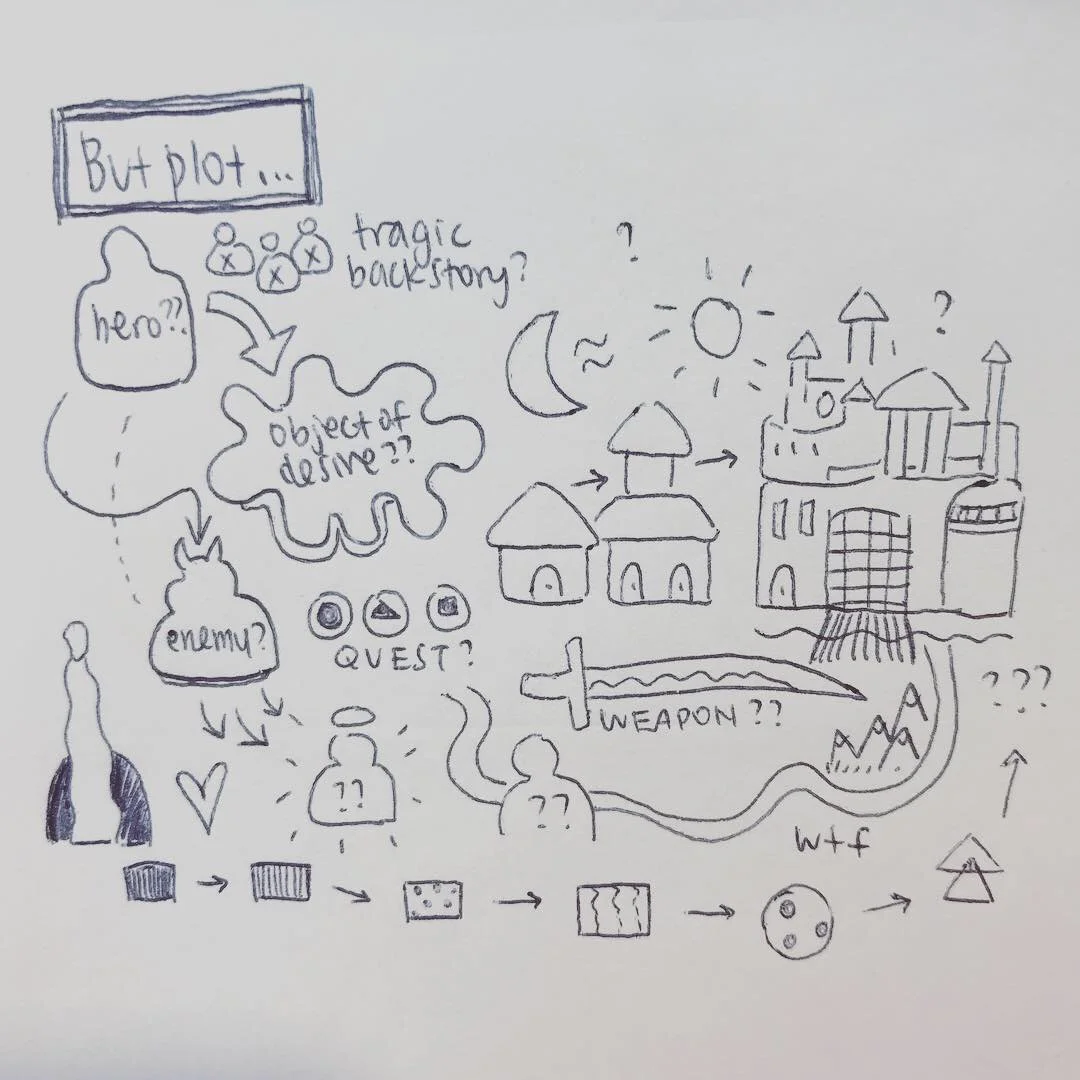 But plot...
tragic
backstory?
hero??
?
?
object of
desire??
enemy?
QUEST?
WEAPON??
???
??
??
wtf